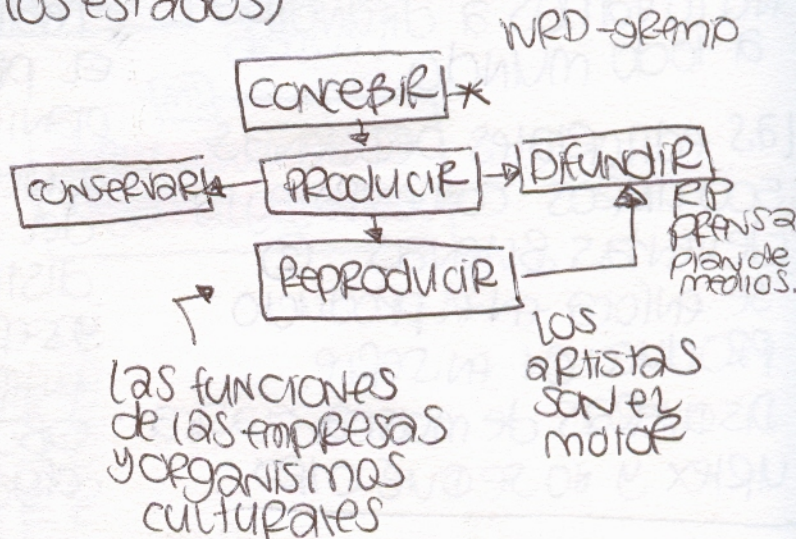 los estados)
CONCEBIR *
CONSERVAR
PRODUCIR
DIFUNDIR
RP
PRENSA
plan de
medios.
REPRODUCIR
los
artistas
son el
motor
las funciones
de las empresas
y organismos
culturales